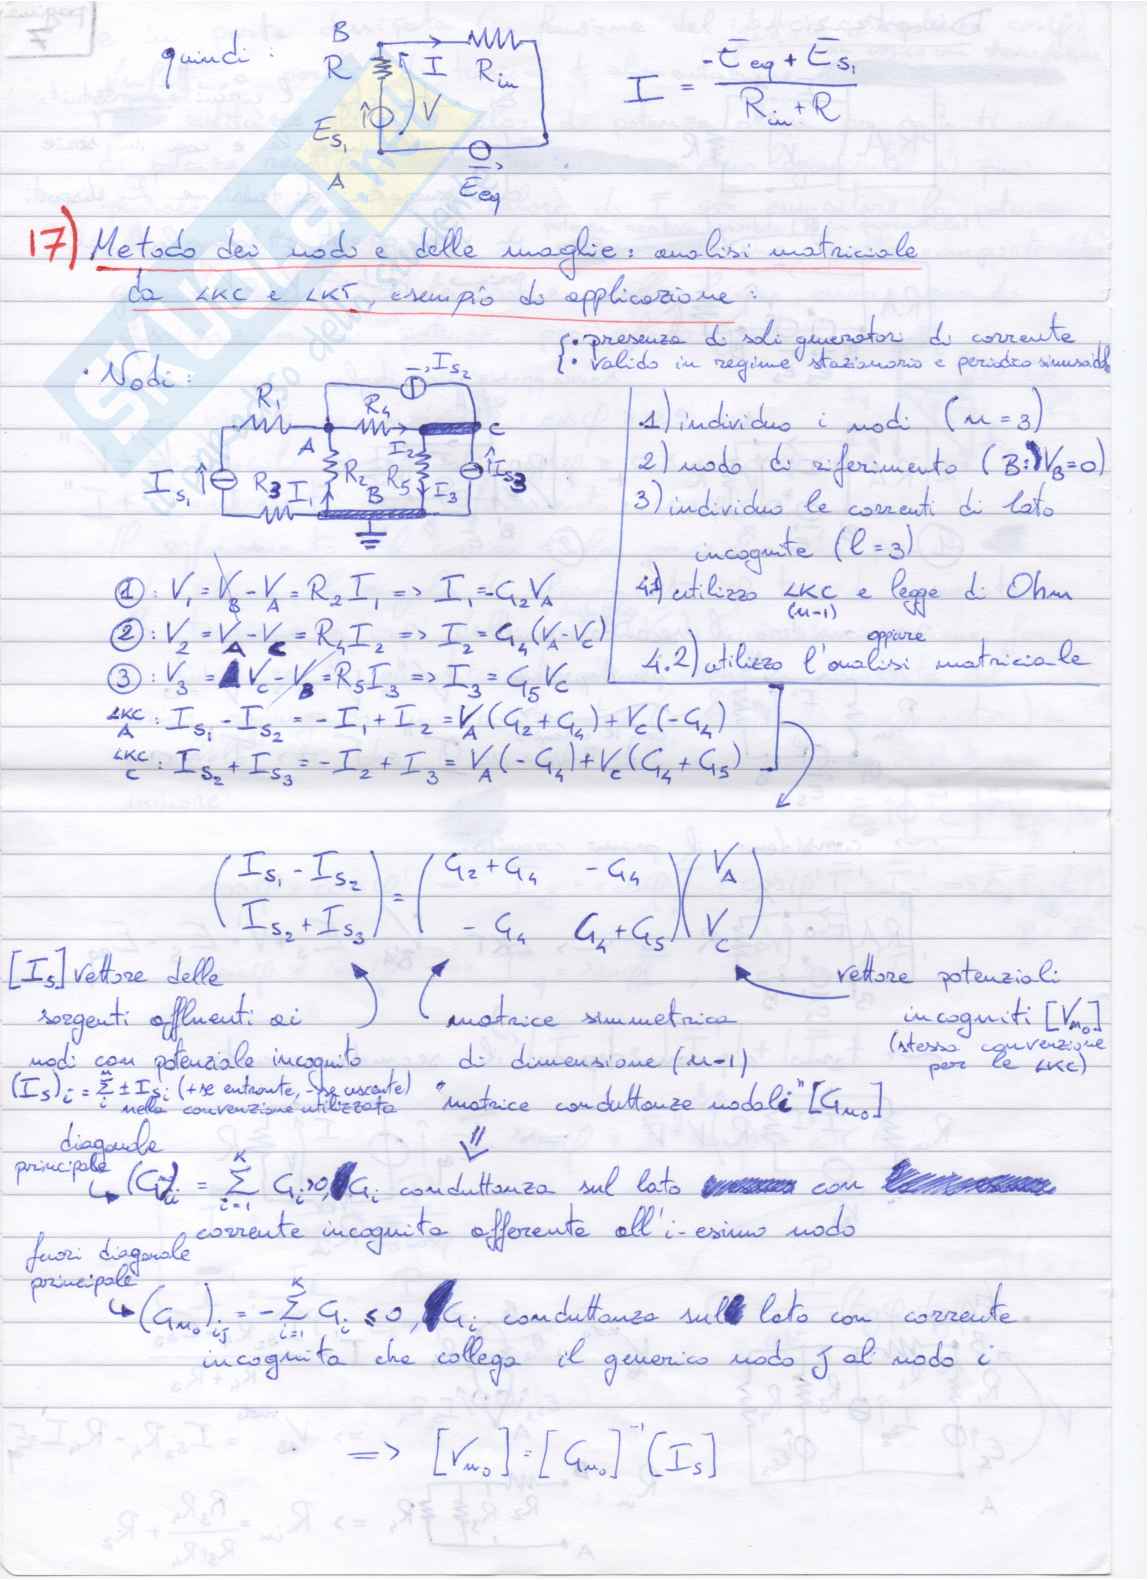 pagina
7
quindi :
B
R
I
R_in
V
E_S1
A
E_eq
I = (-E_eq + E_S1) / (R_in + R)
17) Metodo dei nodi e delle maglie : analisi matriciale
da LKC e LKT, esempio di applicazione :
{ • presenza di soli generatori di corrente
{ • valido in regime stazionario e periodico sinusoidale
• Nodi :
I_S2
R1
R4
A
C
I2
I_S1
R3
I1
R2
B
R5
I3
I_S3
1) individuo i nodi (n = 3)
2) nodo di riferimento (B: V_B = 0)
3) individuo le correnti di lato
incognite (l = 3)
4.1) utilizzo LKC e legge di Ohm
(n-1)
oppure
4.2) utilizzo l'analisi matriciale
① : V1 = V_B - V_A = R2 I1 => I1 = -G2 V_A
② : V2 = V_A - V_C = R4 I2 => I2 = G4 (V_A - V_C)
③ : V3 = V_C - V_B = R5 I3 => I3 = G5 V_C
LKC A : I_S1 - I_S2 = - I1 + I2 = V_A (G2 + G4) + V_C (-G4)
LKC C : I_S2 + I_S3 = - I2 + I3 = V_A (-G4) + V_C (G4 + G5)
( I_S1 - I_S2 ) = ( G2 + G4 - G4 ) ( V_A )
( I_S2 + I_S3 ) ( - G4 G4 + G5 ) ( V_C )
[I_S] vettore delle
sorgenti affluenti ai
nodi con potenziale incognito
(I_S)_i = Σ_i^n ± I_Si (+ se entrante, - se uscente)
nella convenzione utilizzata
matrice simmetrica
di dimensione (n-1)
"matrice conduttanze nodali" [G_no]
vettore potenziali
incogniti [V_no]
(stessa convenzione
per le LKC)
diagonale
principale
(G)_ii = Σ_{i=1}^K G_i > 0, G_i conduttanza sul lato con
corrente incognita afferente all'i-esimo nodo
fuori diagonale
principale
(G_no)_ij = - Σ_{i=1}^K G_i ≤ 0, G_i conduttanza sul lato con corrente
incognita che collega il generico nodo J al nodo i
=> [V_no] = [G_no]^-1 (I_S]